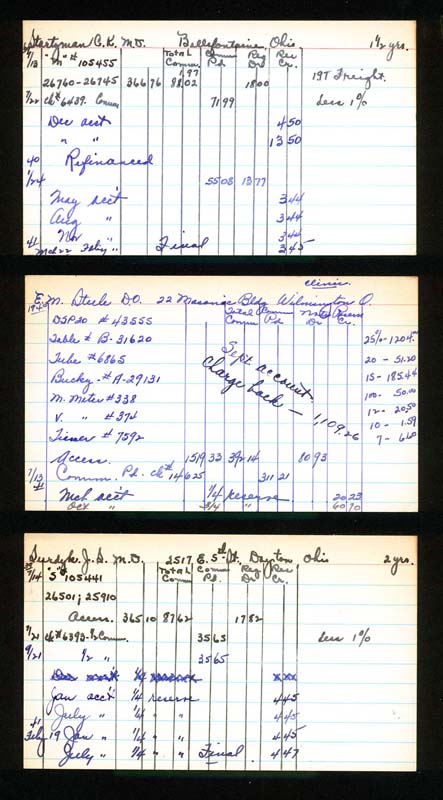 Startzman C.K. M.D. Bellefontaine, Ohio 1½ yrs.
7/13 "M" #105455 Total Comm. Comm Pd. Res Dr Res Cr.
1.97
26760-26745 366 76 98.02 18 00 197 Freight.
7/22 ck# 6439. Comm 71 99 Less 1%
Dec acct 4 50
" " 13 50
40 Refinanced
1/24 55 08 13 77
May acct 3 44
Aug " 3 44
Nov " 3 44
41 Final 3 45
E. M. Steele DO. 22 Masonic Bldg Wilmington O. Clinic.
1940 Total Comm Comm Pd. Notes Dr Reserve Cr.
DSP20 #43555 25% - 1204.00
Table # B-31620 20 - 51.20
Tube #6865 Sept. account. 15 - 185.44
Bucky - #A-29131 Charge back - 1,109.26 100 - 50.00
M. Meter #338 12 - 20.50
V. " #374 10 - 1.59
Timer #7592 7 - 6.60
Access. 1519 33 392 14 80 93
7/13 Comm. Pd. ck# 14625 311 21
41 Mch acct ¼ Reserve 20 23
Oct " 3/4 " 60 70
J. S. M.D. 2517 E. 5th St. Dayton Ohio 2 yrs.
7/14 S" 105441 Total Comm Comm Pd. Res Dr Res Cr.
26501; 25910
Access. 365 10 87 62 17 82
7/21 ck# 6393-½ Comm. 35 65 Less 1%
9/21 ½ " 35 65
Jan acct ¼ reserve 4 45
July " ¼ " " 4 45
41 Feby 19 Jan " ¼ " " 4 45
July " ¼ " " Final 4 47